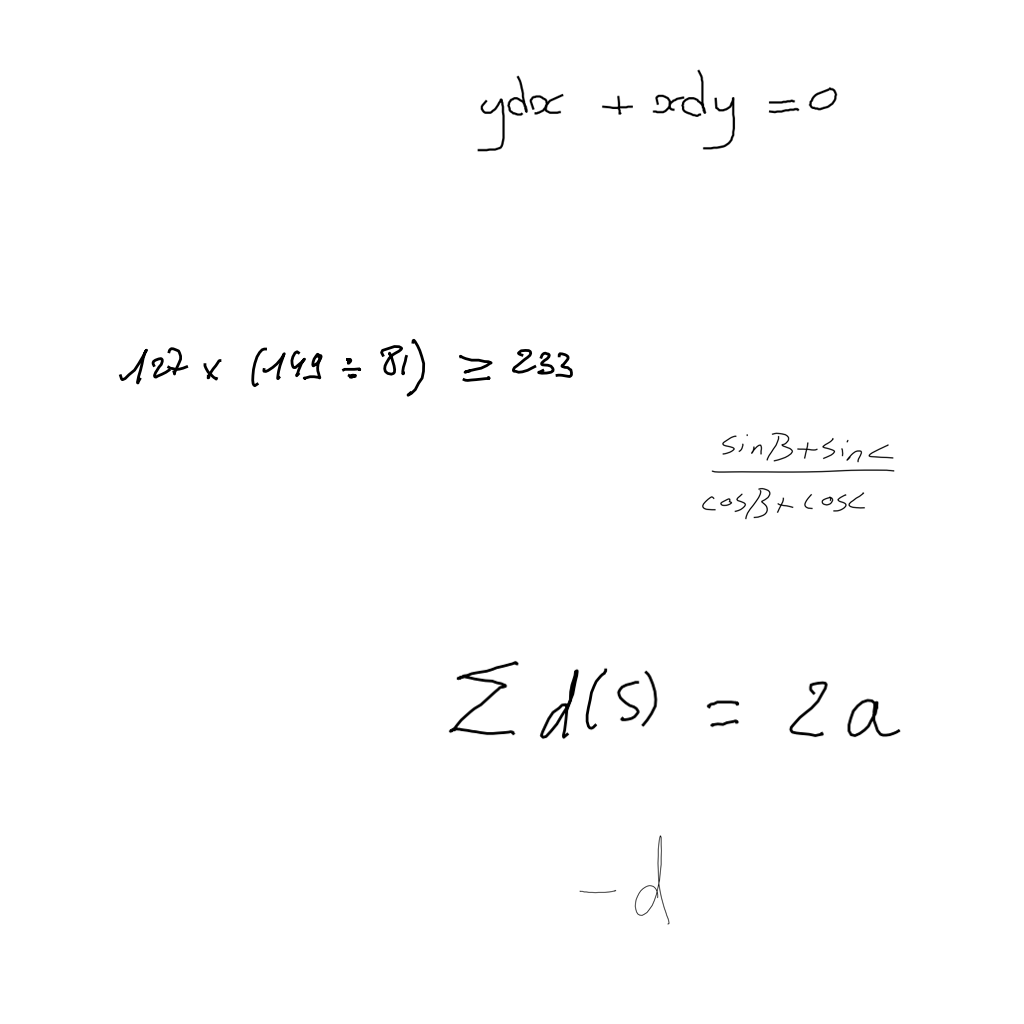 ydx + xdy = 0
127 × (149 ÷ 81) ≥ 233
sinB+sinC
cosB+cosC
∑ d(s) = 2a
-d